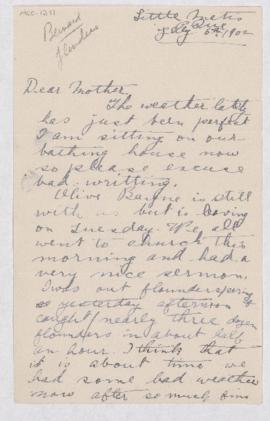 MCC-1211
Bernard
Flounders
Little Metis
July 6th, 1902
Dear Mother
The weather lately
has just been perfect
I am sitting on our
bathing house now
so please excuse
bad writting.
Olive is still
with us but is leaving
on Tuesday. We all
went to church this
morning and had a
very nice sermon.
I was out flounderspearing
yesterday afternoon &
caught nearly three dozen
flounders in about half
an hour. I think that
it is about time we
had some bad weather
now after so much fine